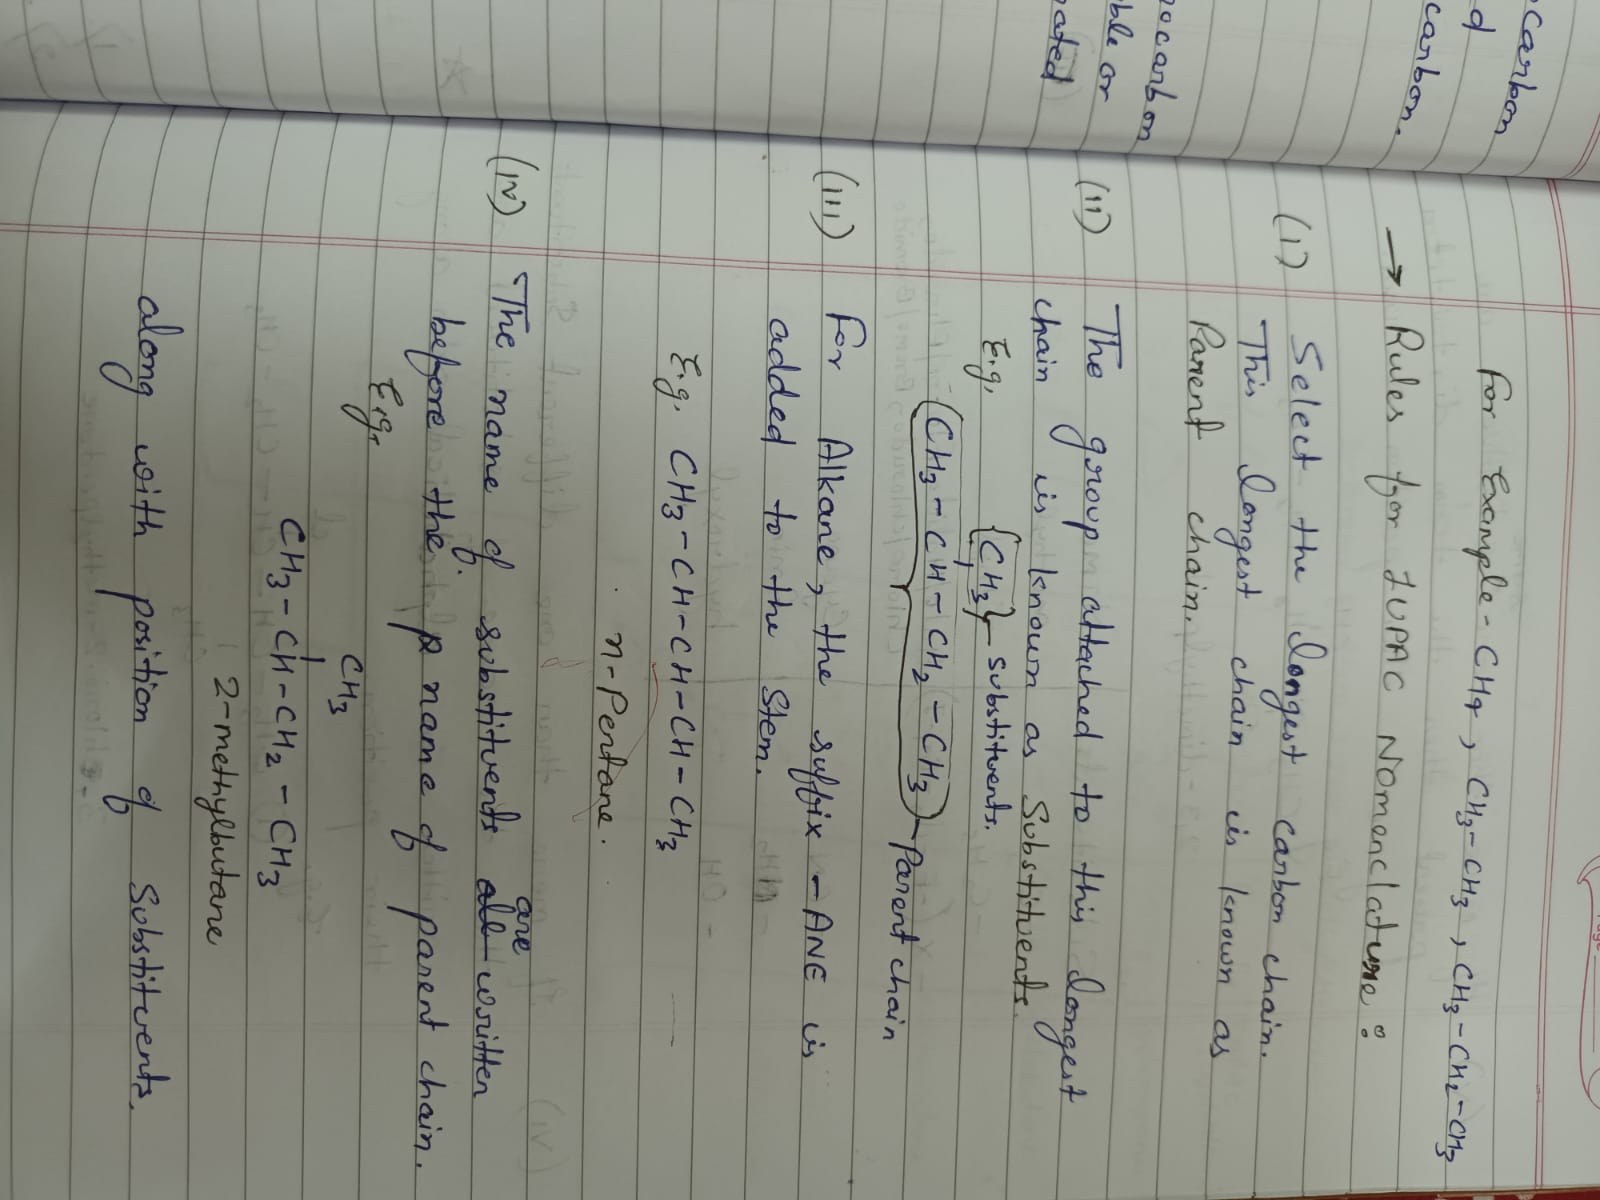 ocarbon
d
carbon.
nocarbon
ble or
ated
For Example - CH4, CH3-CH3, CH3-CH2-CH3
→ Rules for IUPAC Nomenclature:
(i) Select the longest carbon chain.
This longest chain is known as
Parent chain.
(ii) The group attached to this longest
chain is known as Substituents.
E.g. CH3 - substituents.
CH3-CH-CH2-CH3 - Parent chain
(iii) For Alkane, the suffix - ANE is
added to the Stem.
E.g. CH3-CH-CH-CH-CH3
n-Pentane.
(iv) The name of substituents are written
before the name of parent chain.
E.g.
CH3
CH3-CH-CH2-CH3
2-methylbutane
along with position of Substituents.